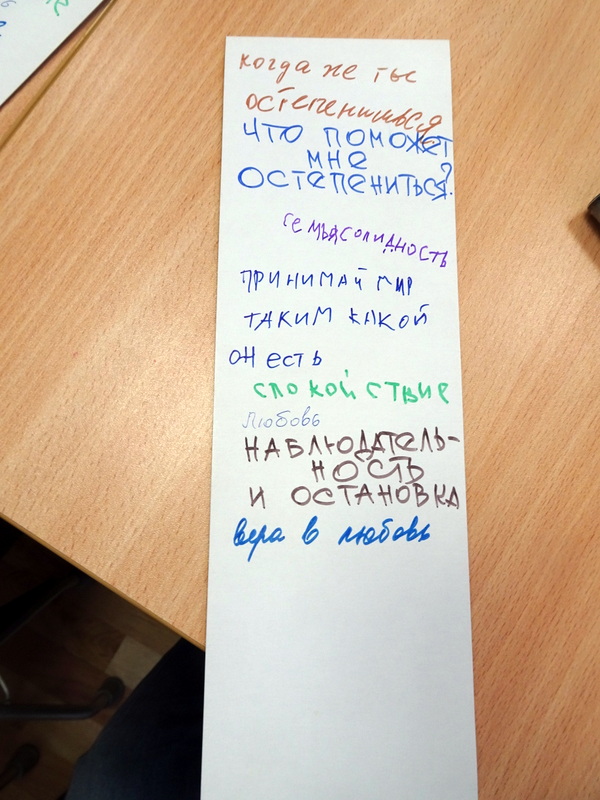 когда же ты
остепенишься
ЧТО ПОМОЖЕТ
МНЕ
ОСТЕПЕНИТЬСЯ?
семья солидность
ПРИНИМАЙ МИР
ТАКИМ КАКОЙ
ОН есть
спокойствие
любовь
НАБЛЮДАТЕЛЬ-
НОСТЬ
И ОСТАНОВКА
вера в любовь